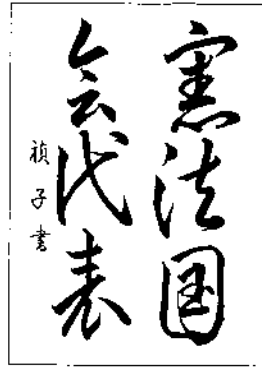 憲法国
会代表
禎子書